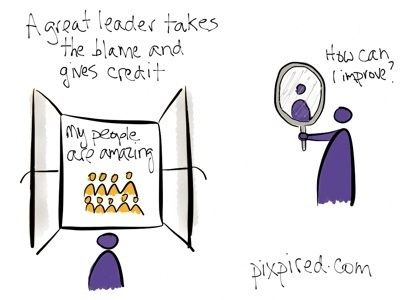 A great leader takes
the blame and
gives credit
My people
are amazing
How can
I improve?
pixpired.com